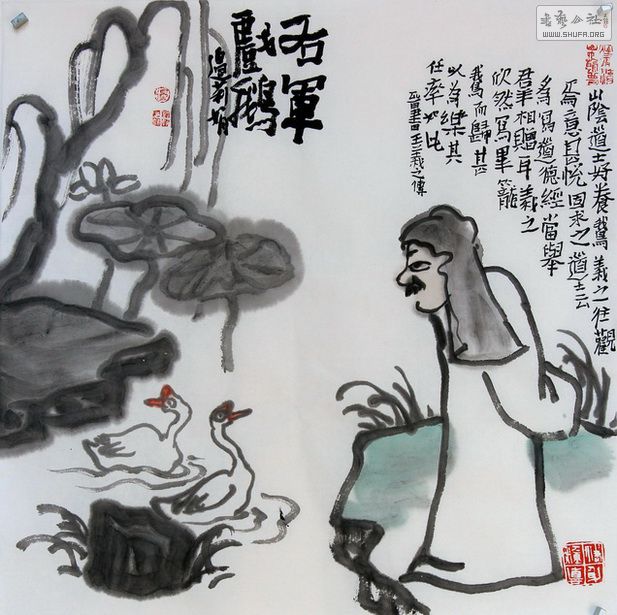 书艺公社
WWW.SHUFA.ORG
右軍
戲鵝
山陰道士好養鵞羲之往觀
焉意甚悅固求之道士云
為寫道德經當舉
羣相贈耳羲之
欣然寫畢籠
鵞而歸甚
以為樂其
任率如此
晉書王羲之傳